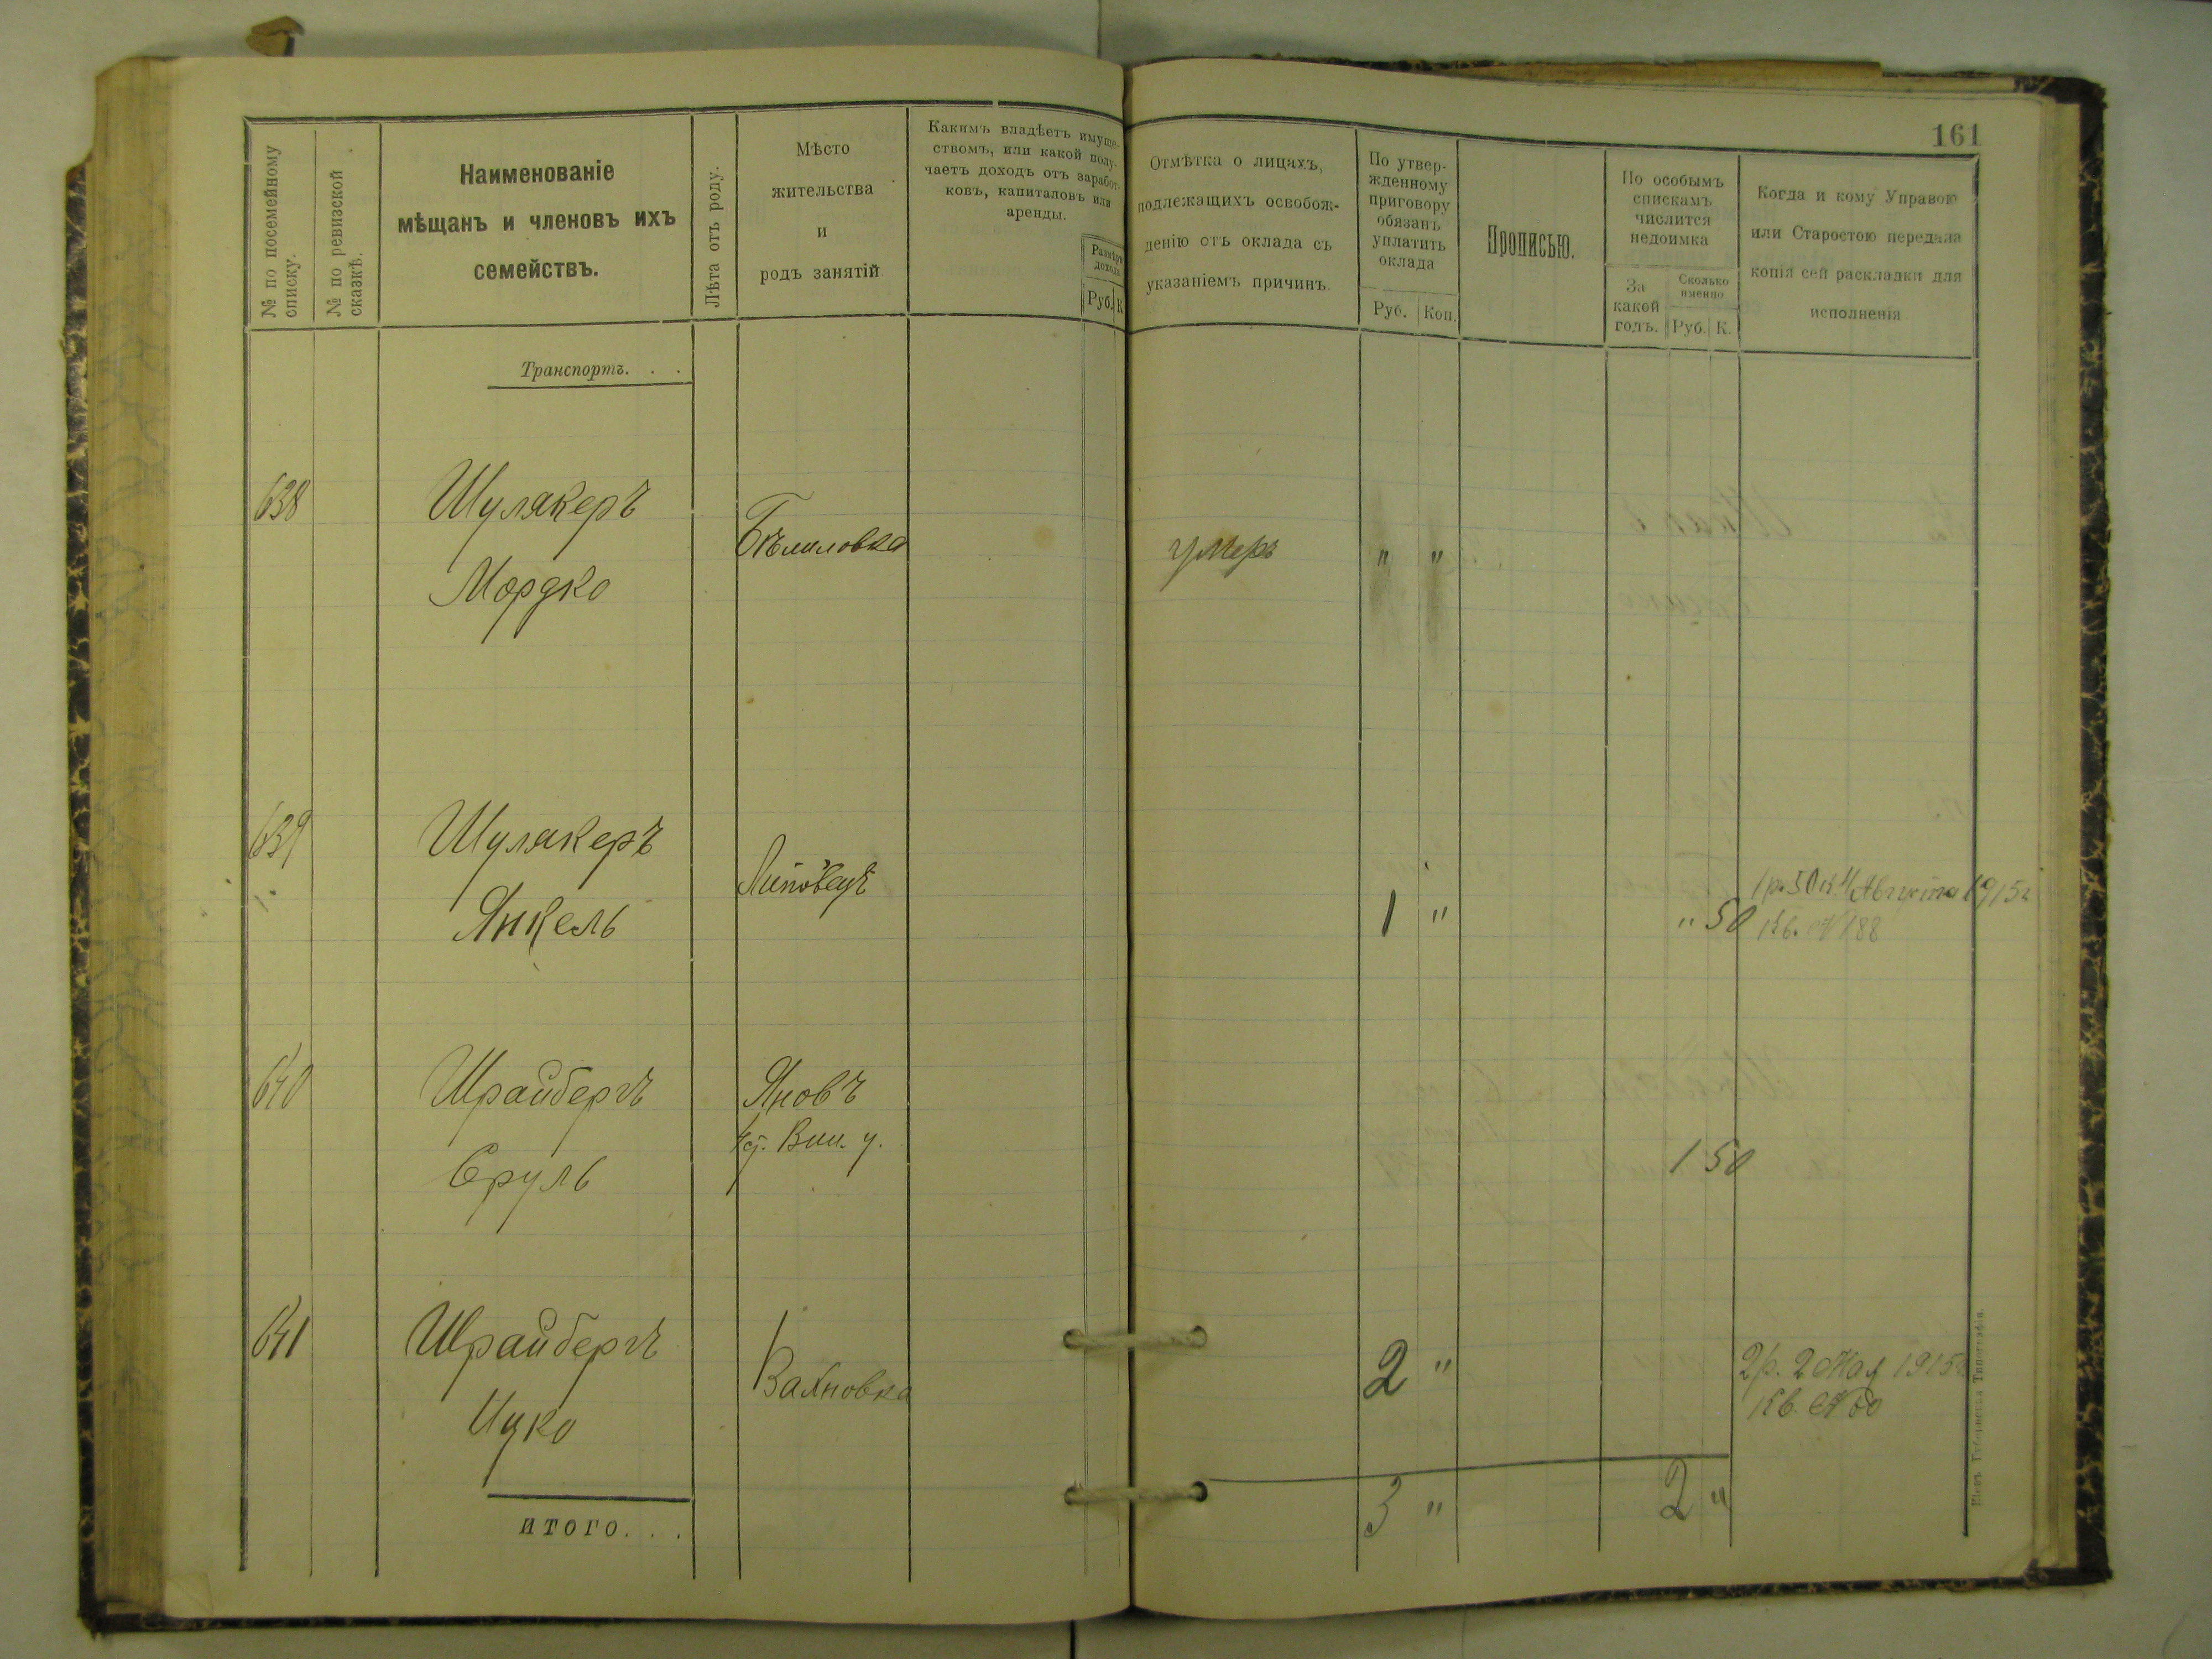 161
№ по посемейному
списку.
№ по ревизской
сказкѣ.
Наименованіе
мѣщанъ и членовъ ихъ
семействъ.
Лѣта отъ роду.
Мѣсто
жительства
и
родъ занятій
Какимъ владѣетъ имуще-
ствомъ, или какой полу-
чаетъ доходъ отъ заработ-
ковъ, капиталовъ или
аренды.
Размѣръ
дохода
Руб. К
Отмѣтка о лицахъ,
подлежащихъ освобож-
денію отъ оклада съ
указаніемъ причинъ.
По утвер-
жденному
приговору
обязанъ
уплатить
оклада
Руб. Коп.
Прописью.
По особымъ
спискамъ
числится
недоимка
За
какой
годъ.
Сколько
именно
Руб. К.
Когда и кому Управою
или Старостою передана
копія сей раскладки для
исполненія
Транспортъ. . .
638 Шулякеръ
Мордко
Бѣлиловка умеръ " "
639 Шулякеръ
Янкель
Липовецъ 1 " " 50
1 р. 50 к. 4 Августа 1915 г
Кв. № 188
640 Шрайбергъ
Сруль
Яновъ
Вин. у.
1 50
641 Шрайбергъ
Ицко
Вахновка 2 "
2 р. 2 Мая 1915 г
Кв. № 60
ИТОГО. . . 3 " 2 "
Кіевъ. Губернская Типографія.